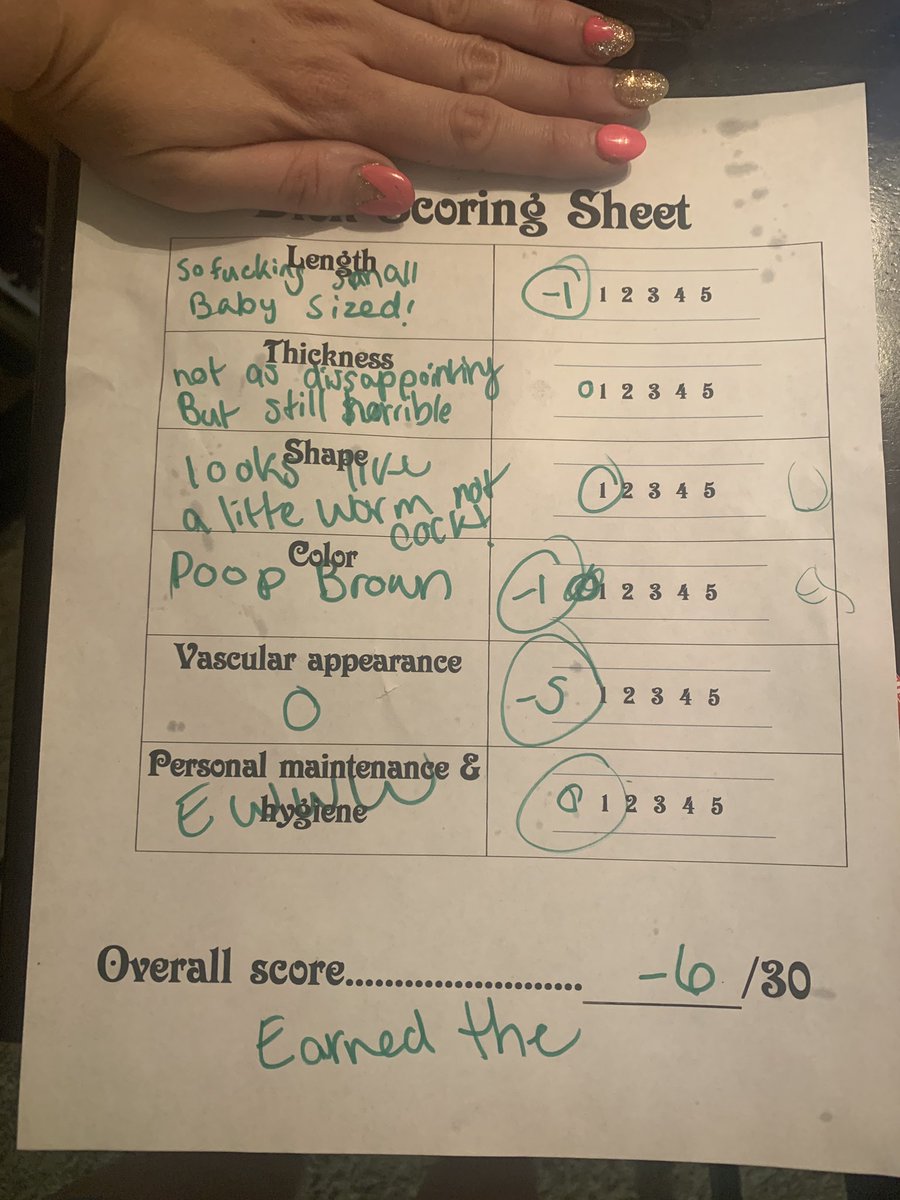 Scoring Sheet
Length
So fucking small
Baby sized!
-1 1 2 3 4 5
Thickness
not as dissappointing
But still horrible
0 1 2 3 4 5
Shape
looks like
a litte worm not
cock!
1 2 3 4 5
Color
Poop Brown
-1 0 1 2 3 4 5
Vascular appearance
0
-5 1 2 3 4 5
Personal maintenance &
hygiene
EWWWW
0 1 2 3 4 5
Overall score....................... -6 /30
Earned the